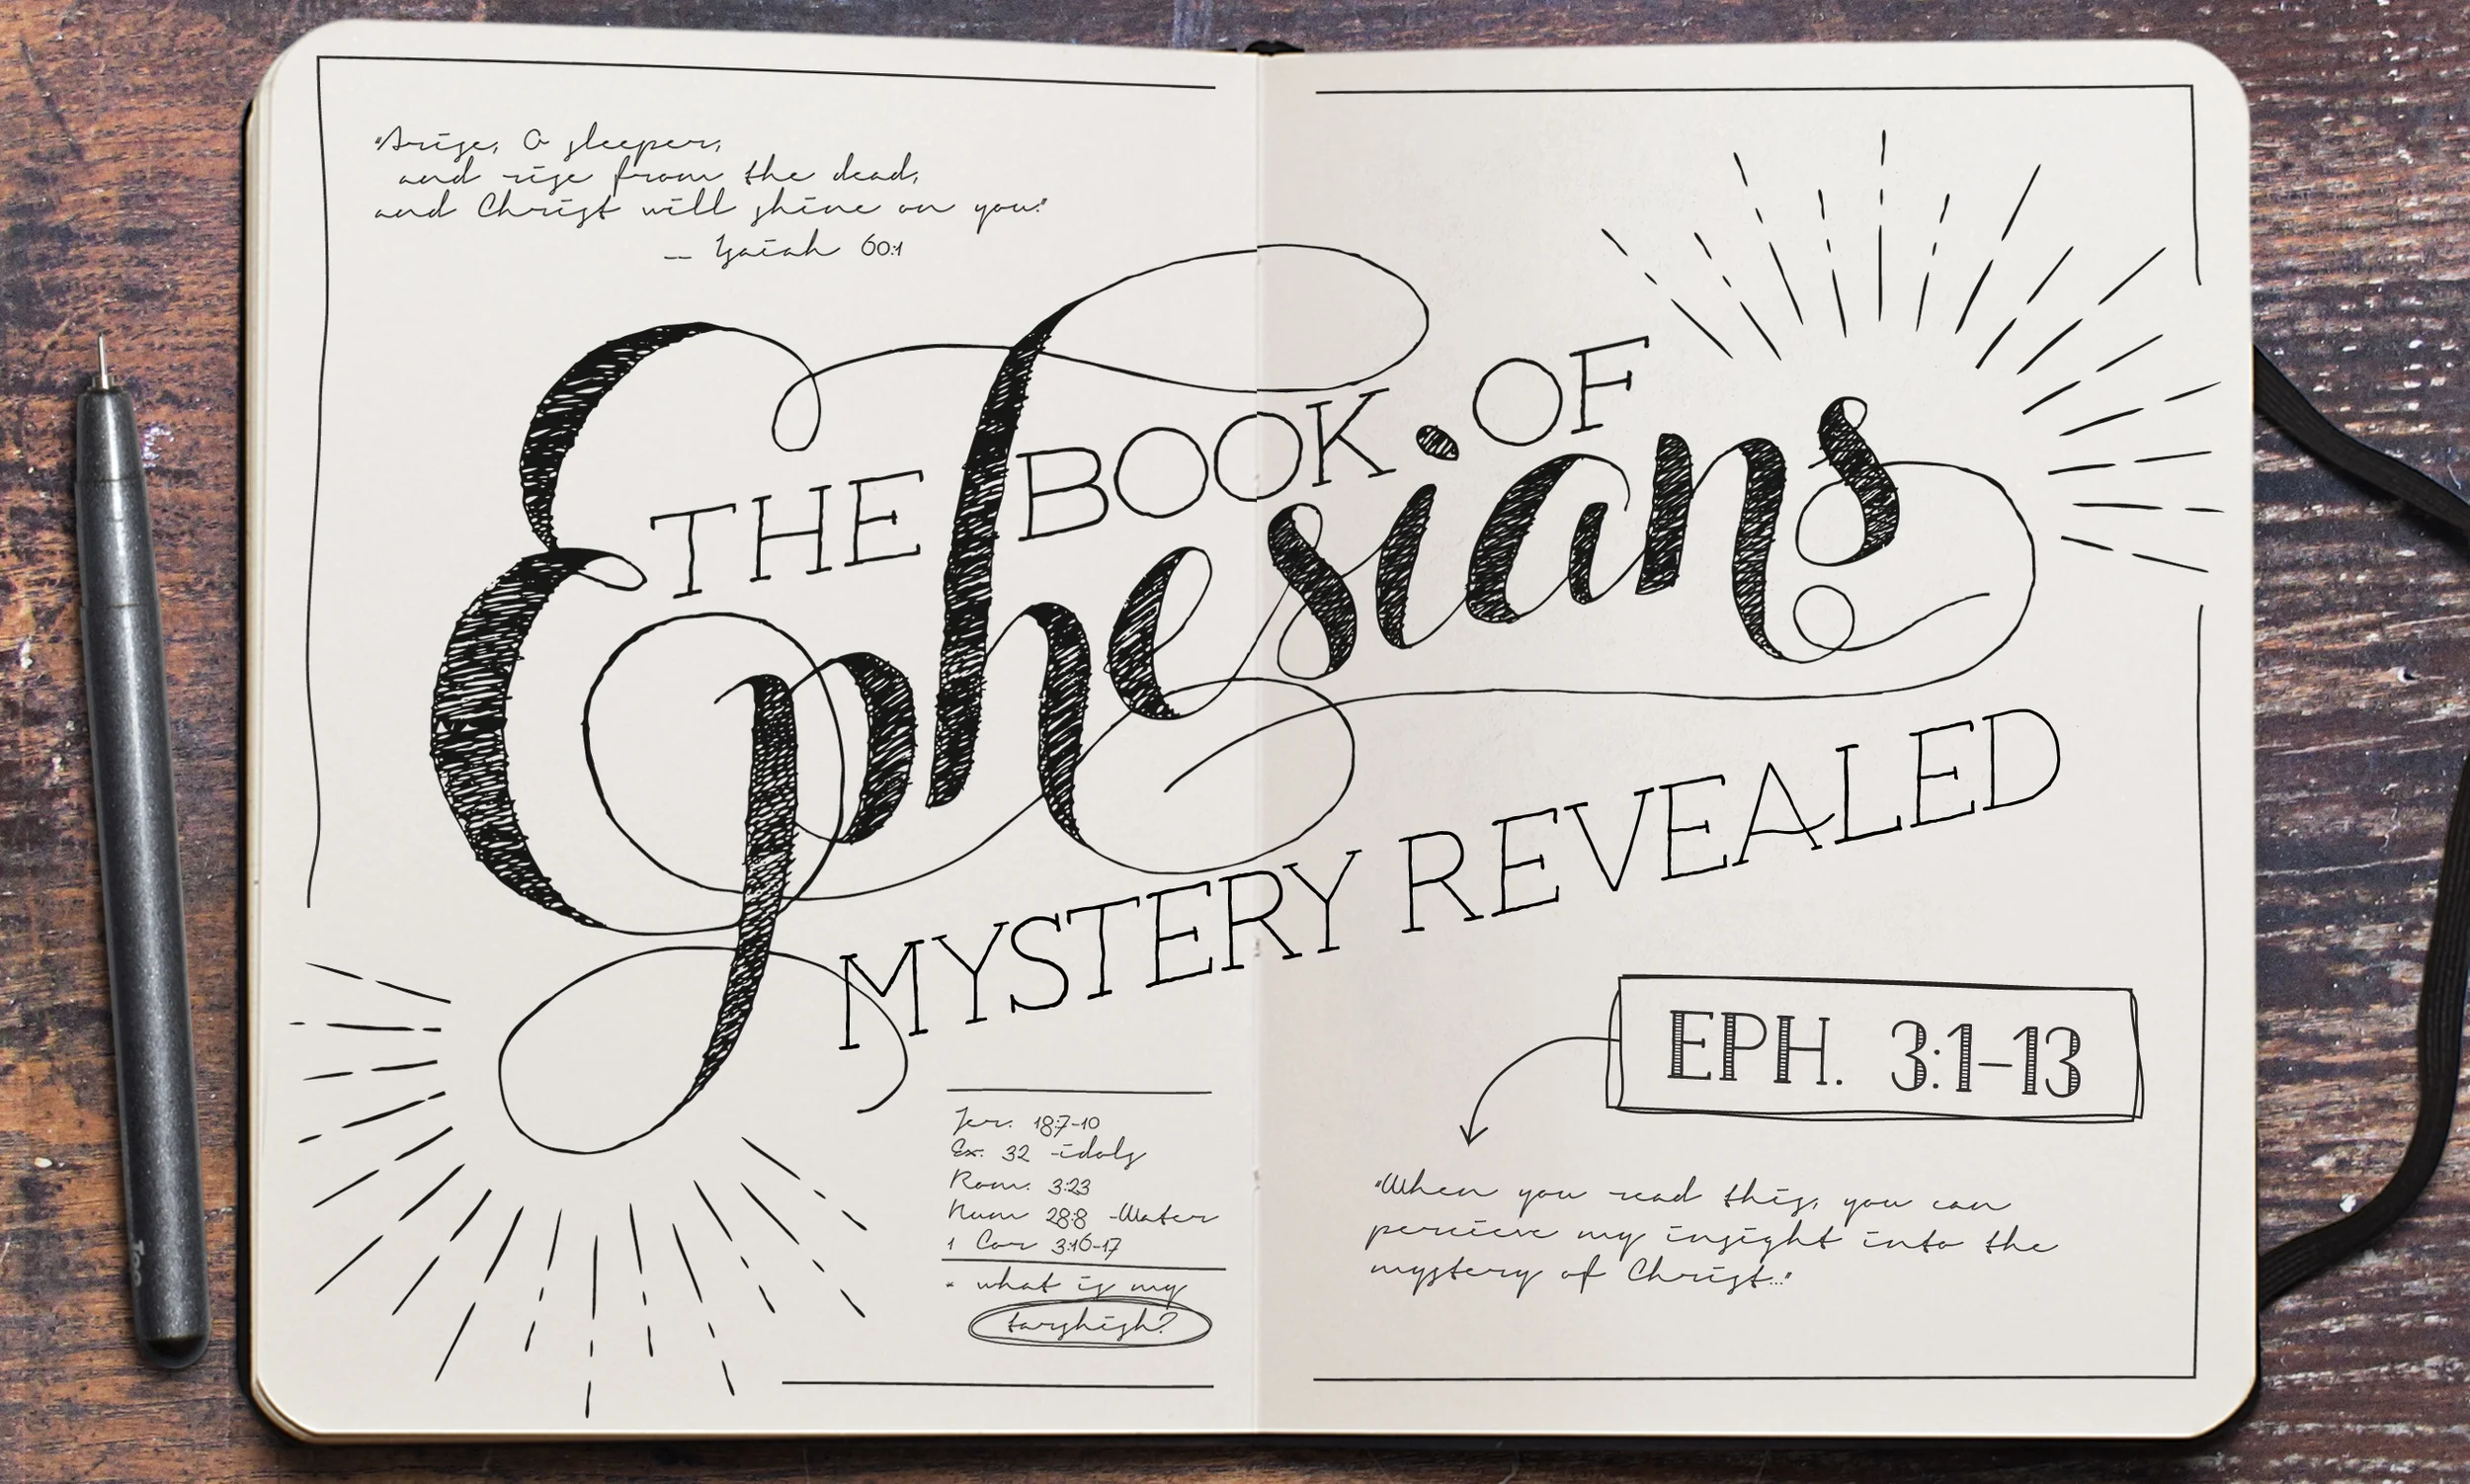 "Arise, O sleeper,
and rise from the dead,
and Christ will shine on you."
-- Isaiah 60:1
THE BOOK OF
Ephesians
MYSTERY REVEALED
EPH. 3:1-13
Jer. 18:7-10
Ex. 32 -idols
Rom. 3:23
Num 28:8 -Water
1 Cor 3:16-17
- what is my
tarshish?
"When you read this, you can
percieve my insight into the
mystery of Christ..."